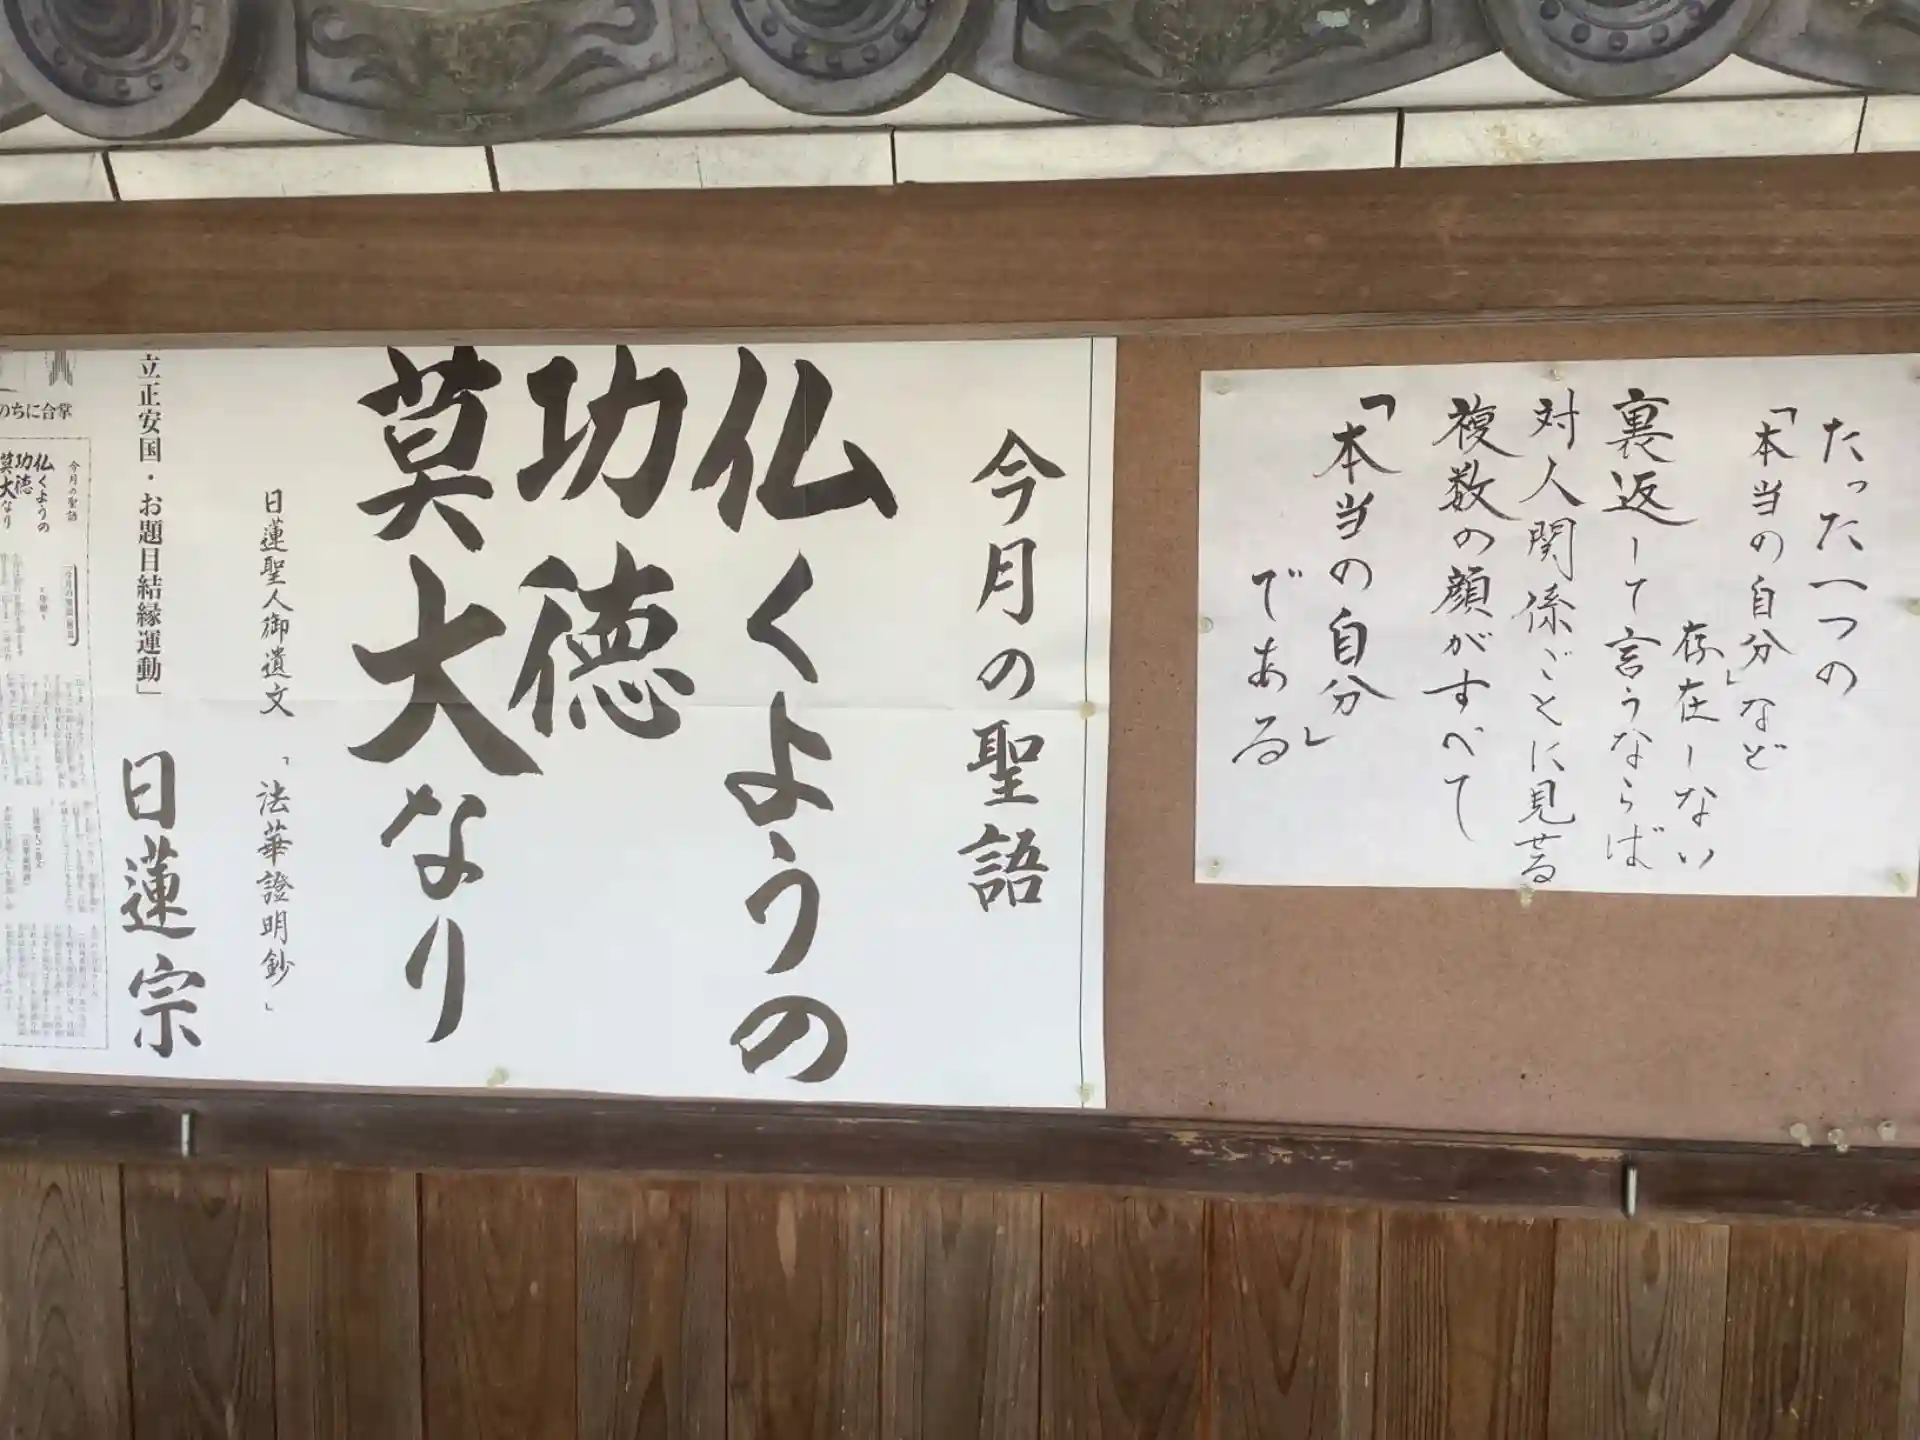 たった一つの
「本当の自分」など
存在しない
裏返して言うならば
対人関係ごとに見せる
複数の顔がすべて
「本当の自分」
である
今月の聖語
仏くようの
功徳
莫大なり
日蓮聖人御遺文 「法華證明鈔」
立正安国・お題目結縁運動」
日蓮宗
のちに合掌
今月の聖語
仏くようの
功徳
莫大なり